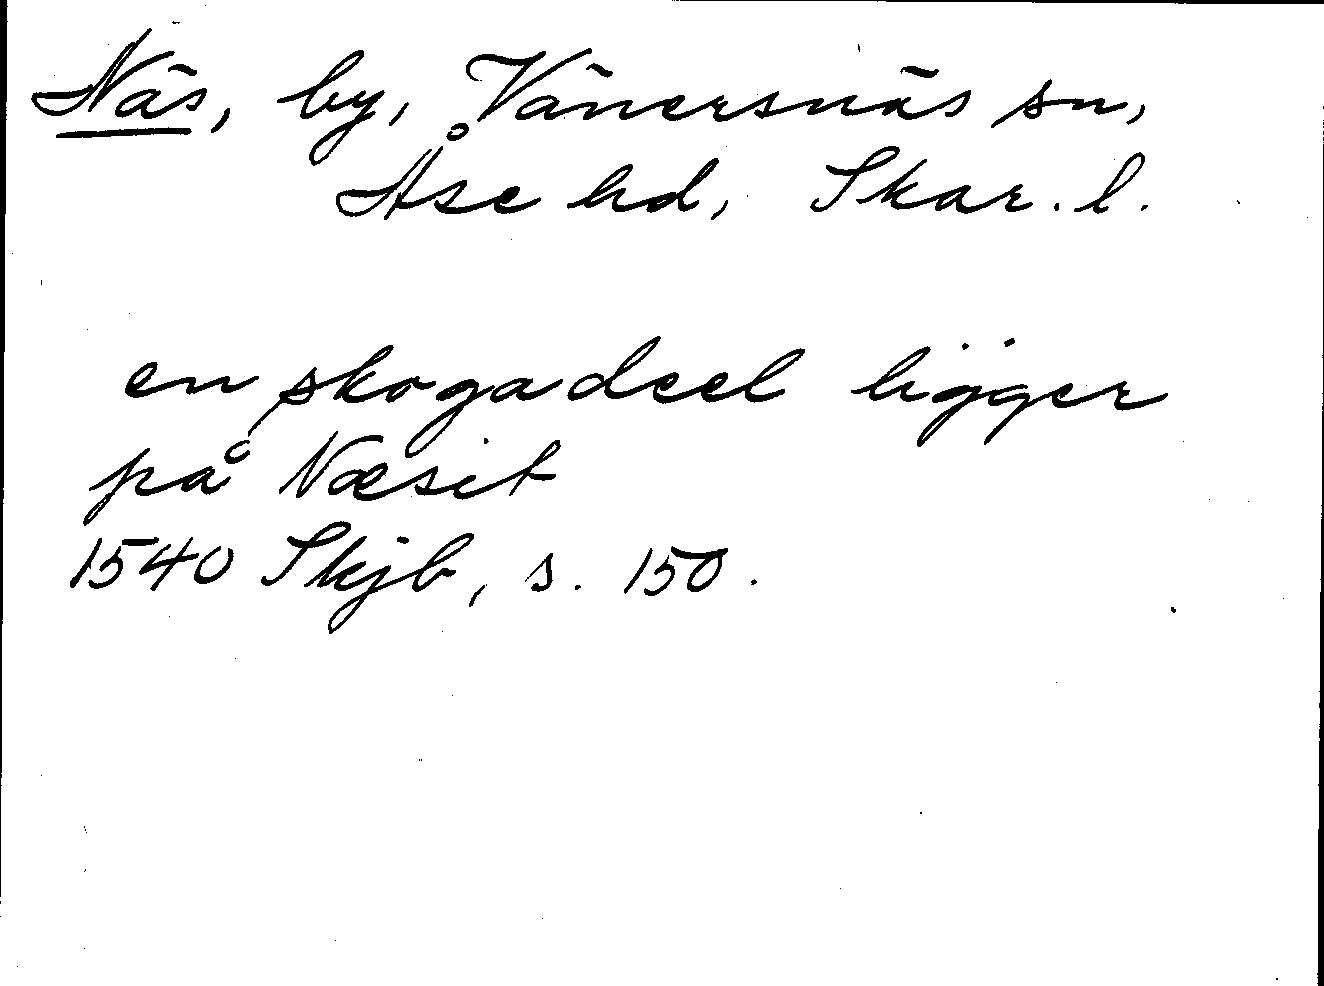 Näs, by, Vänersnäs sn,
Åse hd, Skar. l.
en skogadeel ligger
på Næsit
1540 Skjb, s. 150.